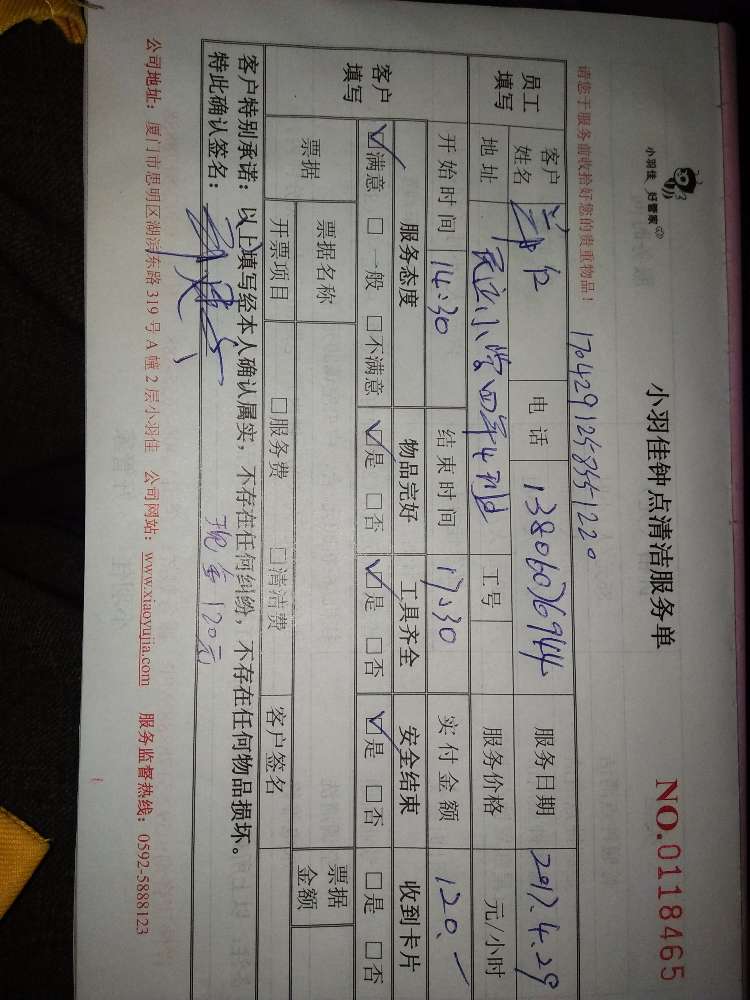 小羽佳 好管家
小羽佳钟点清洁服务单
NO.0118465
请您于服务前收拾好您的贵重物品！
1704291258551220
员工填写 客户姓名 电话 13806076944 服务日期 2017.4.29
地址 民立小学四年4班 工号 服务价格 元/小时
开始时间 14:30 结束时间 17:30 实付金额 120.-
客户填写 服务态度 物品完好 工具齐全 安全结束 收到卡片
☑满意 □一般 □不满意 ☑是 □否 ☑是 □否 ☑是 □否 □是 □否
票据 票据名称 票据金额
开票项目 □服务费 □清洁费 客户签名
客户特别承诺：以上填写经本人确认属实，不存在任何纠纷，不存在任何物品损坏。
特此确认签名：
现金120元
公司地址：厦门市思明区湖滨东路319号A幢2层小羽佳 公司网站：www.xiaoyujia.com 服务监督热线：0592-5888123